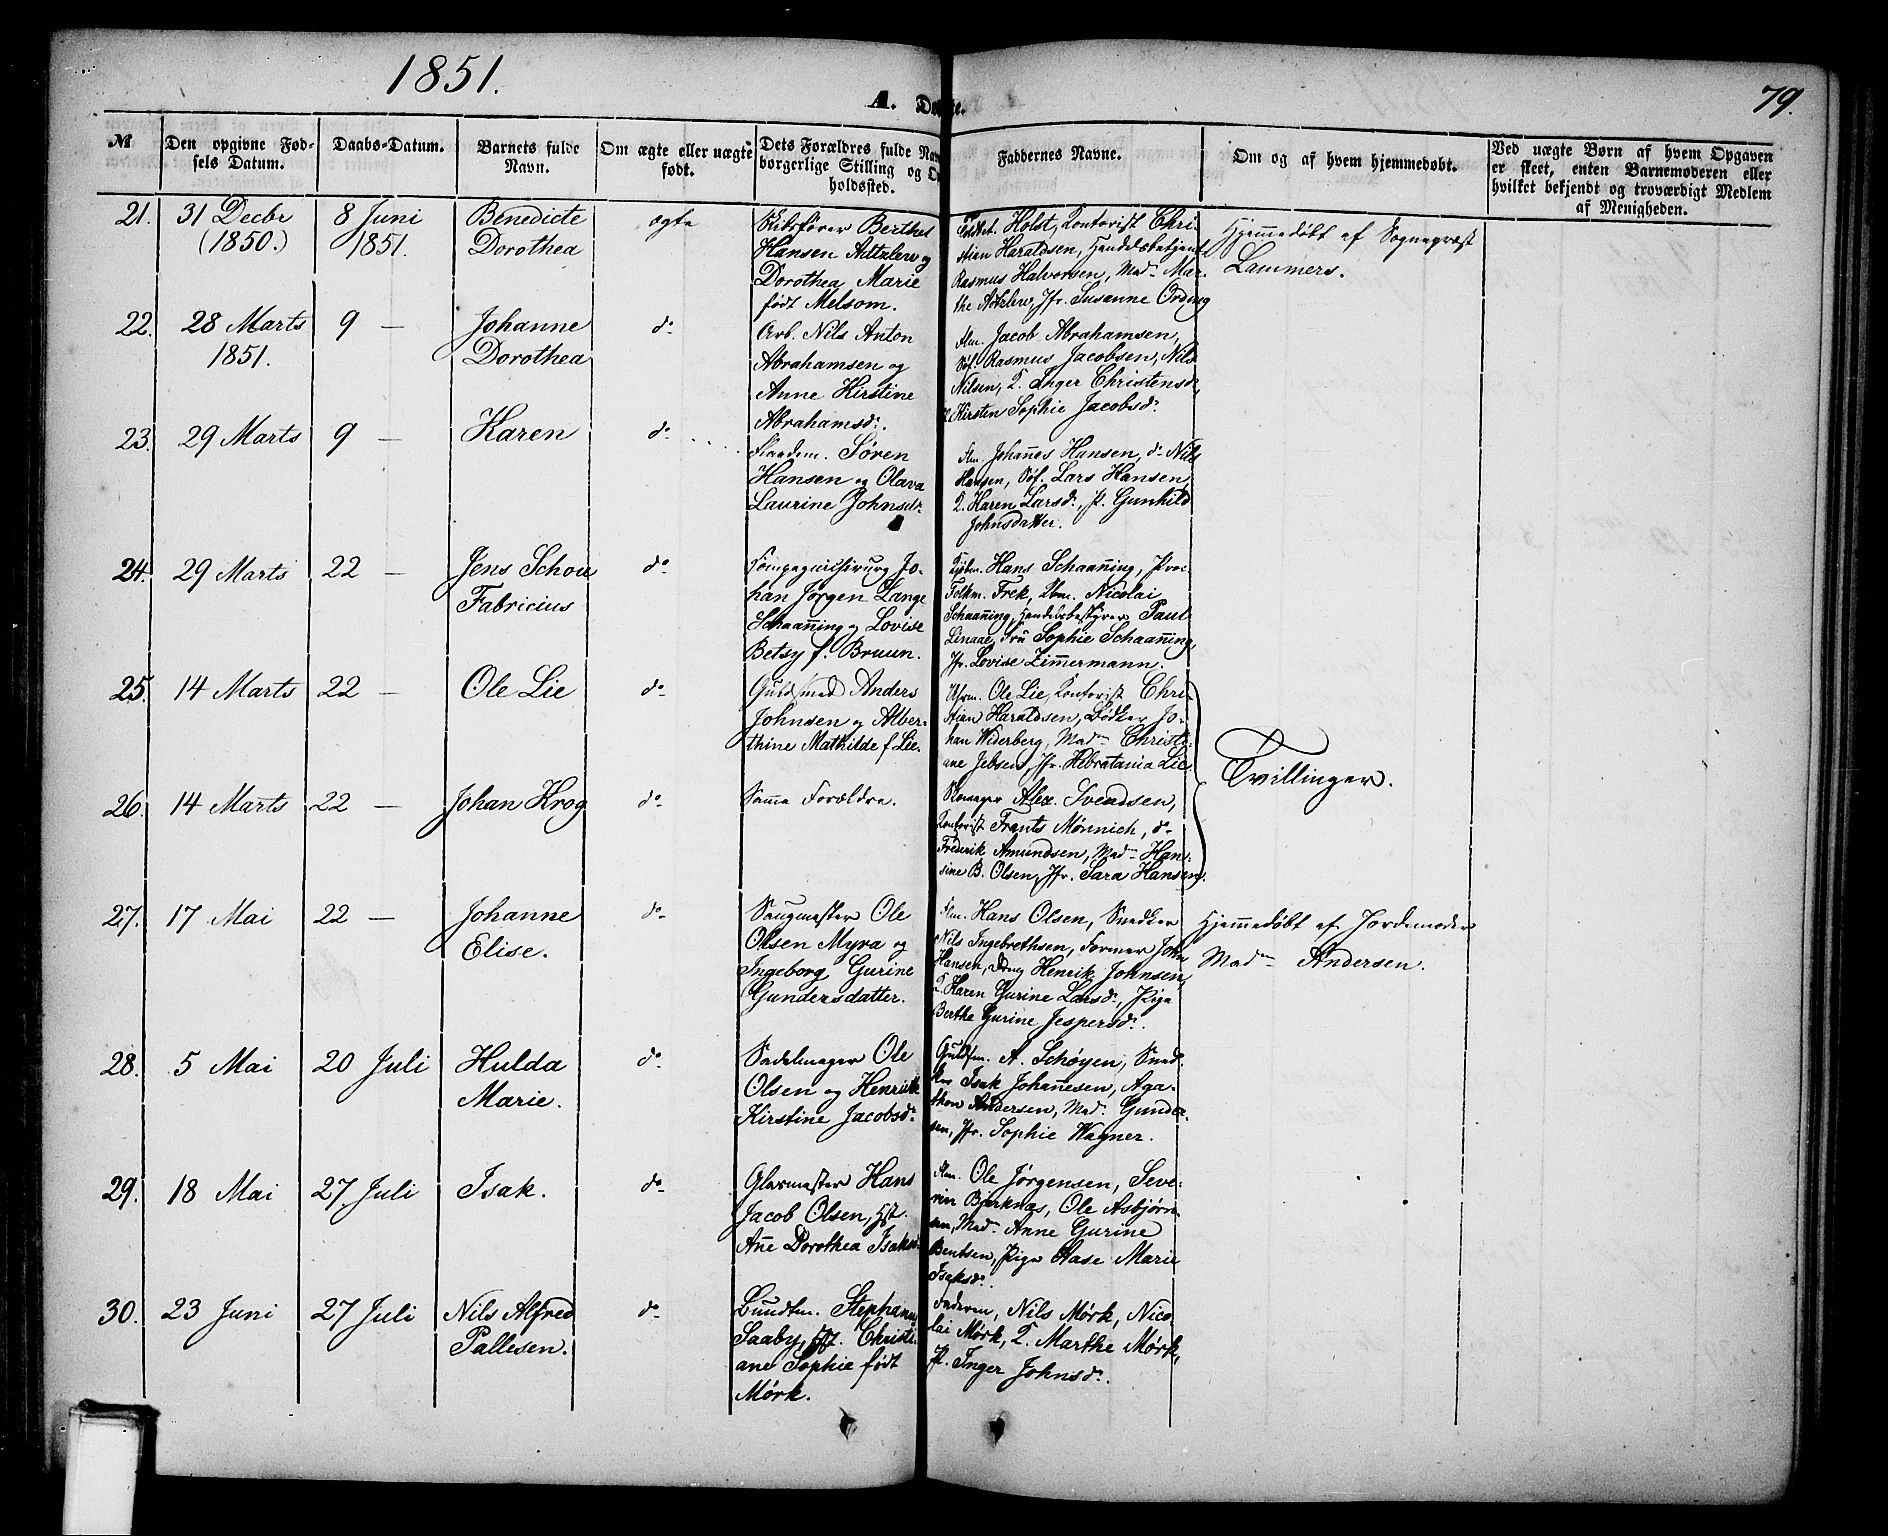 1851.
A. Døbte.
79.
№
Den opgivne Fød-
sels Datum.
Daabs-Datum.
Barnets fulde
Navn.
Om ægte eller uægte
født.
Dets Forældres fulde Nav
borgerlige Stilling og O
holdssted.
Faddernes Navne.
Om og af hvem hjemmedøbt.
Ved uægte Børn af hvem Opgaven
er skeet, enten Barnemoderen eller
hvilket bekjendt og troværdigt Medlem
af Menigheden.
21.
31 Decbr
(1850.)
8 Juni
1851.
Benedicte
Dorothea
ægte
Skibsfører Berthel
Hansen Altzlew og
Dorothea Marie
født Melsom.
Holst, Kontorist Chri-
stian Haraldsen, Handelsbetjent
Rasmus Halvorsen, Mad. Mar-
the Altzlew, Jfr. SusanneOrding
Hjemmedøbt af Sognepræst
Lammers.
22.
28 Marts
1851.
9 —
Johanne
Dorothea
do
Arb. Nils Anton
Abrahamsen og
Anne Kirstine
Abrahamsdr.
Alm. Jacob Abrahamsen,
Søf. Rasmus Jacobsen, Nils
Nilsen, K. Inger Christensdr,
P. Kirsten Sophie Jacobsdr.
23.
29 Marts
9 —
Karen
do
Søren
Hansen og Olava
Laurine Johnsdr
Alm. Johannes Hansen, do Nils
Hansen, Søf. Lars Hansen,
K. Karen Larsdr, P. Gunhild
Johnsdatter.
24.
29 Marts
22 —
Jens Schou
Fabricius
do
Compagnichirurg Jo-
han Jørgen Lange
Schaanning og Lovise
Betsy f. Bruun.
Kjøbm. Hans Schaanning, Proc.
Folkm. Frek, Nicolai
Schaanning, Handelsbestyrer Paul
Linaae, Fru Sophie Schaanning,
Jfr. Lovise Zimmermann.
25.
14 Marts
22 —
Ole Lie
do
Guldsmed Anders
Johnsen og Alber-
thine Mathilde f. Lie.
Uhrm. Ole Lie, Kontorist Chri-
stian Haraldsen, Bødker Jo-
han Widerberg, Madm Christi-
ane Jebsen, Jfr. Hebratania Lie
Tvillinger.
26.
14 Marts
22 —
Johan Krog
do
Samme Forældre.
Skomager Alex. Svendsen,
Kontorist Frants Mönnich, do
Frederik Amundsen, Madm Han-
sine B. Olsen, Jfr. Sara Hansen.
27.
17 Mai
22 —
Johanne
Elise.
do
Saugmester Ole
Olsen Myra og
Ingeborg Gurine
Gundersdatter.
Alm. Hans Olsen, Snedker
Nils Ingebrethsen, Former John
Hansen, Dreng Henrik Johnsen,
K. Karen Gurine Larsdr, Pige
Berthe Gurine Jespersdr.
Hjemmedøbt af Jordemoder
Madm Andersen.
28.
5 Mai
20 Juli
Hulda
Marie.
do
Sadelmager Ole
Olsen og Henrikke
Kirstine Jacobsdr
Guldsm. A. Schøyen, Sned-
ker Isak Johannesen, Aga-
thon Andersen, Mad. Gunder-
sen, Jfr. Sophie Wagner.
29.
18 Mai
27 Juli
Isak.
do
Glasmester Hans
Jacob Olsen, Hst.
Anne Dorothea Isaksdr
Alm. Ole Jørgensen, Seve-
rin Bjerknæs, Ole Asbjørn-
sen, Madm Anne Gurine
Bentsen, Pige Aase Marie
Isaksdr.
30.
23 Juni
27 Juli
Nils Alfred
Pallesen.
do
Bundtm. Stephanus
Saaby, Hst. Christi-
ane Sophie født
Mørk.
Faderen, Nils Mørk, Nico-
lai Mørk, K. Marthe Mørk,
P. Inger Johnsdr.